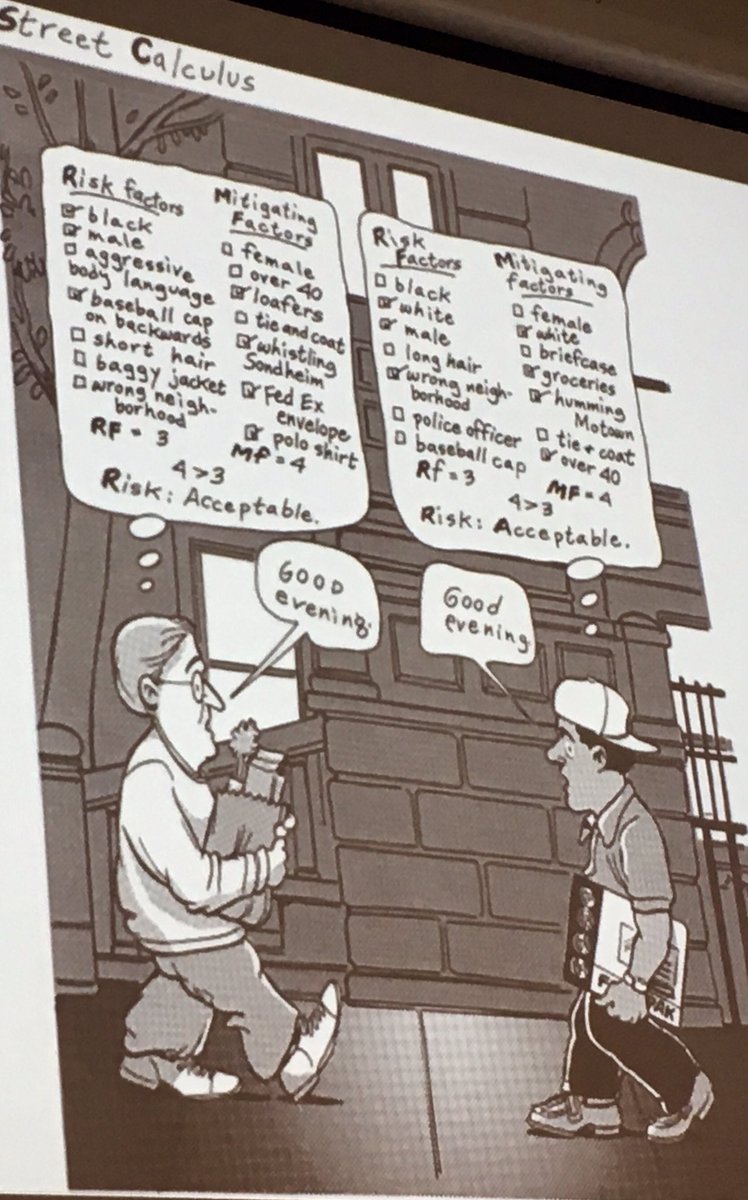 Street Calculus
Risk factors
☑ black
☑ male
☐ aggressive
body language
☑ baseball cap
on backwards
☐ short hair
☐ baggy jacket
☐ wrong neigh-
borhood
RF = 3
Mitigating
Factors
☐ female
☐ over 40
☑ loafers
☐ tie and coat
☑ whistling
Sondheim
☑ Fed Ex
envelope
☑ polo shirt
MF = 4
4 > 3
Risk: Acceptable.
Risk
Factors
☐ black
☑ white
☑ male
☐ long hair
☑ wrong neigh-
borhood
☐ police officer
☐ baseball cap
Rf = 3
Mitigating
factors
☐ female
☑ white
☐ briefcase
☑ groceries
☑ humming
Motown
☐ tie + coat
☑ over 40
MF = 4
4 > 3
Risk: Acceptable.
GOOD
evening.
Good
evening.